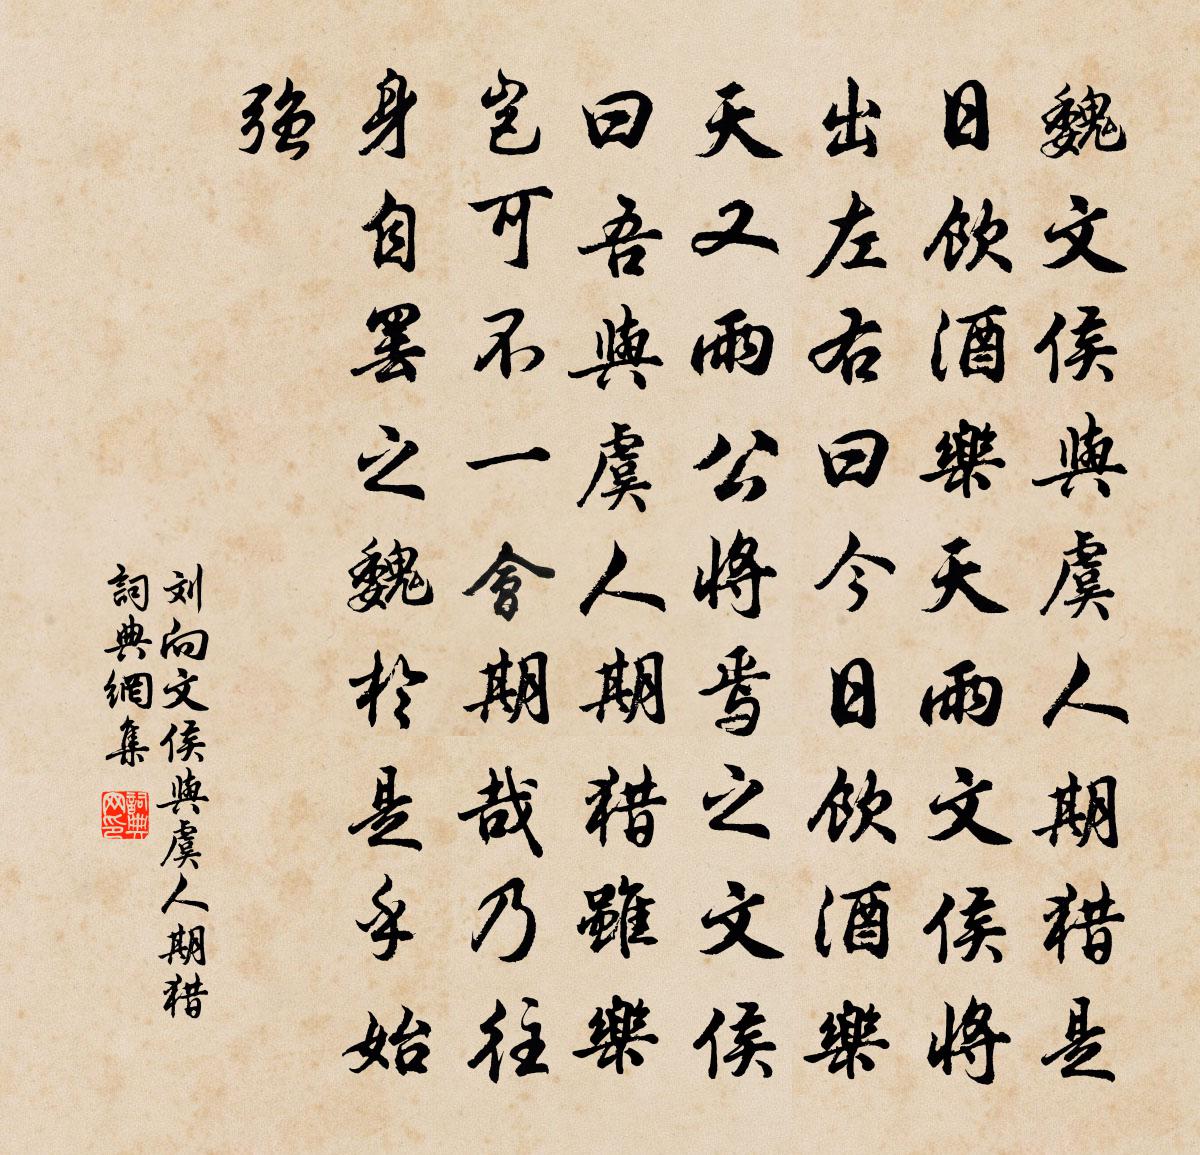 魏文侯與虞人期猎是
日飲酒樂天雨文侯將
出左右曰今日飲酒樂
天又雨公將焉之文侯
曰吾與虞人期猎雖樂
岂可不一會期哉乃往
身自罢之魏於是乎始
強
刘向文侯與虞人期猎
詞典網集
詞典
网印